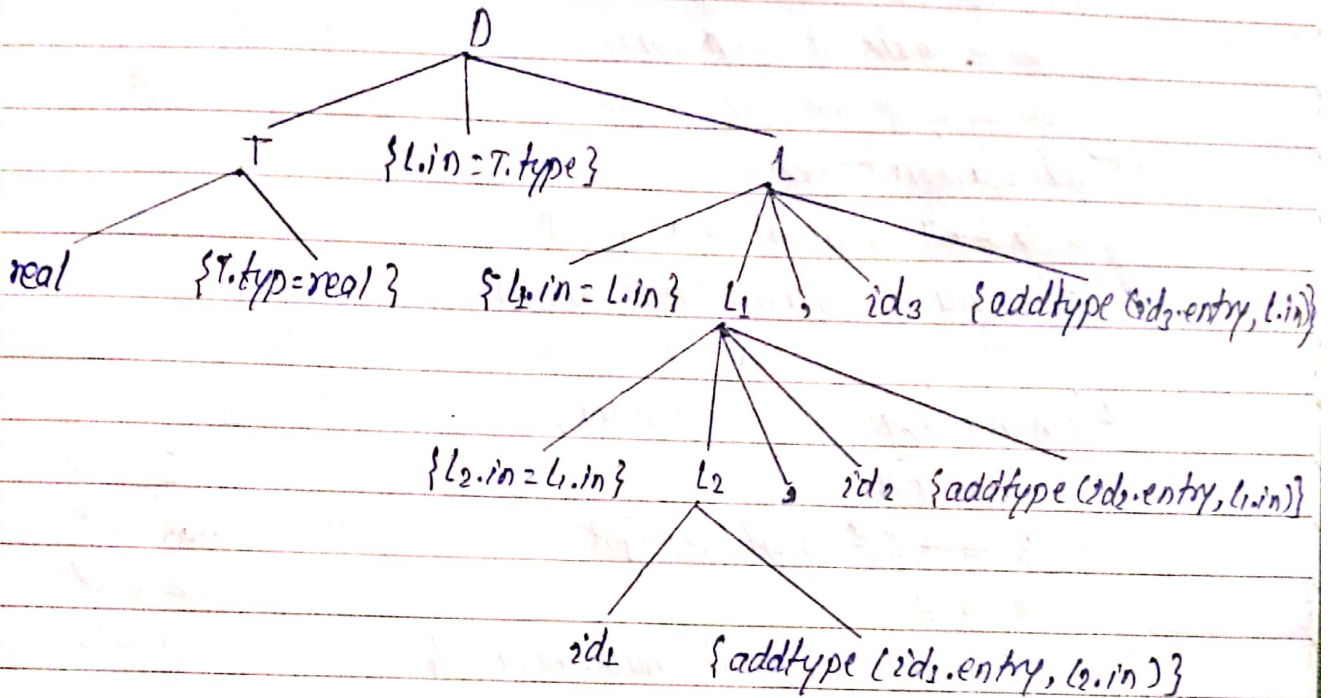 D
T {L.in = T.type} L
real {T.typ=real} {L1.in = L.in} L1 , id3 {addtype (id3.entry, L.in)}
{L2.in = L1.in} L2 , id2 {addtype (id2.entry, L1.in)}
id1 {addtype (id1.entry, L2.in)}